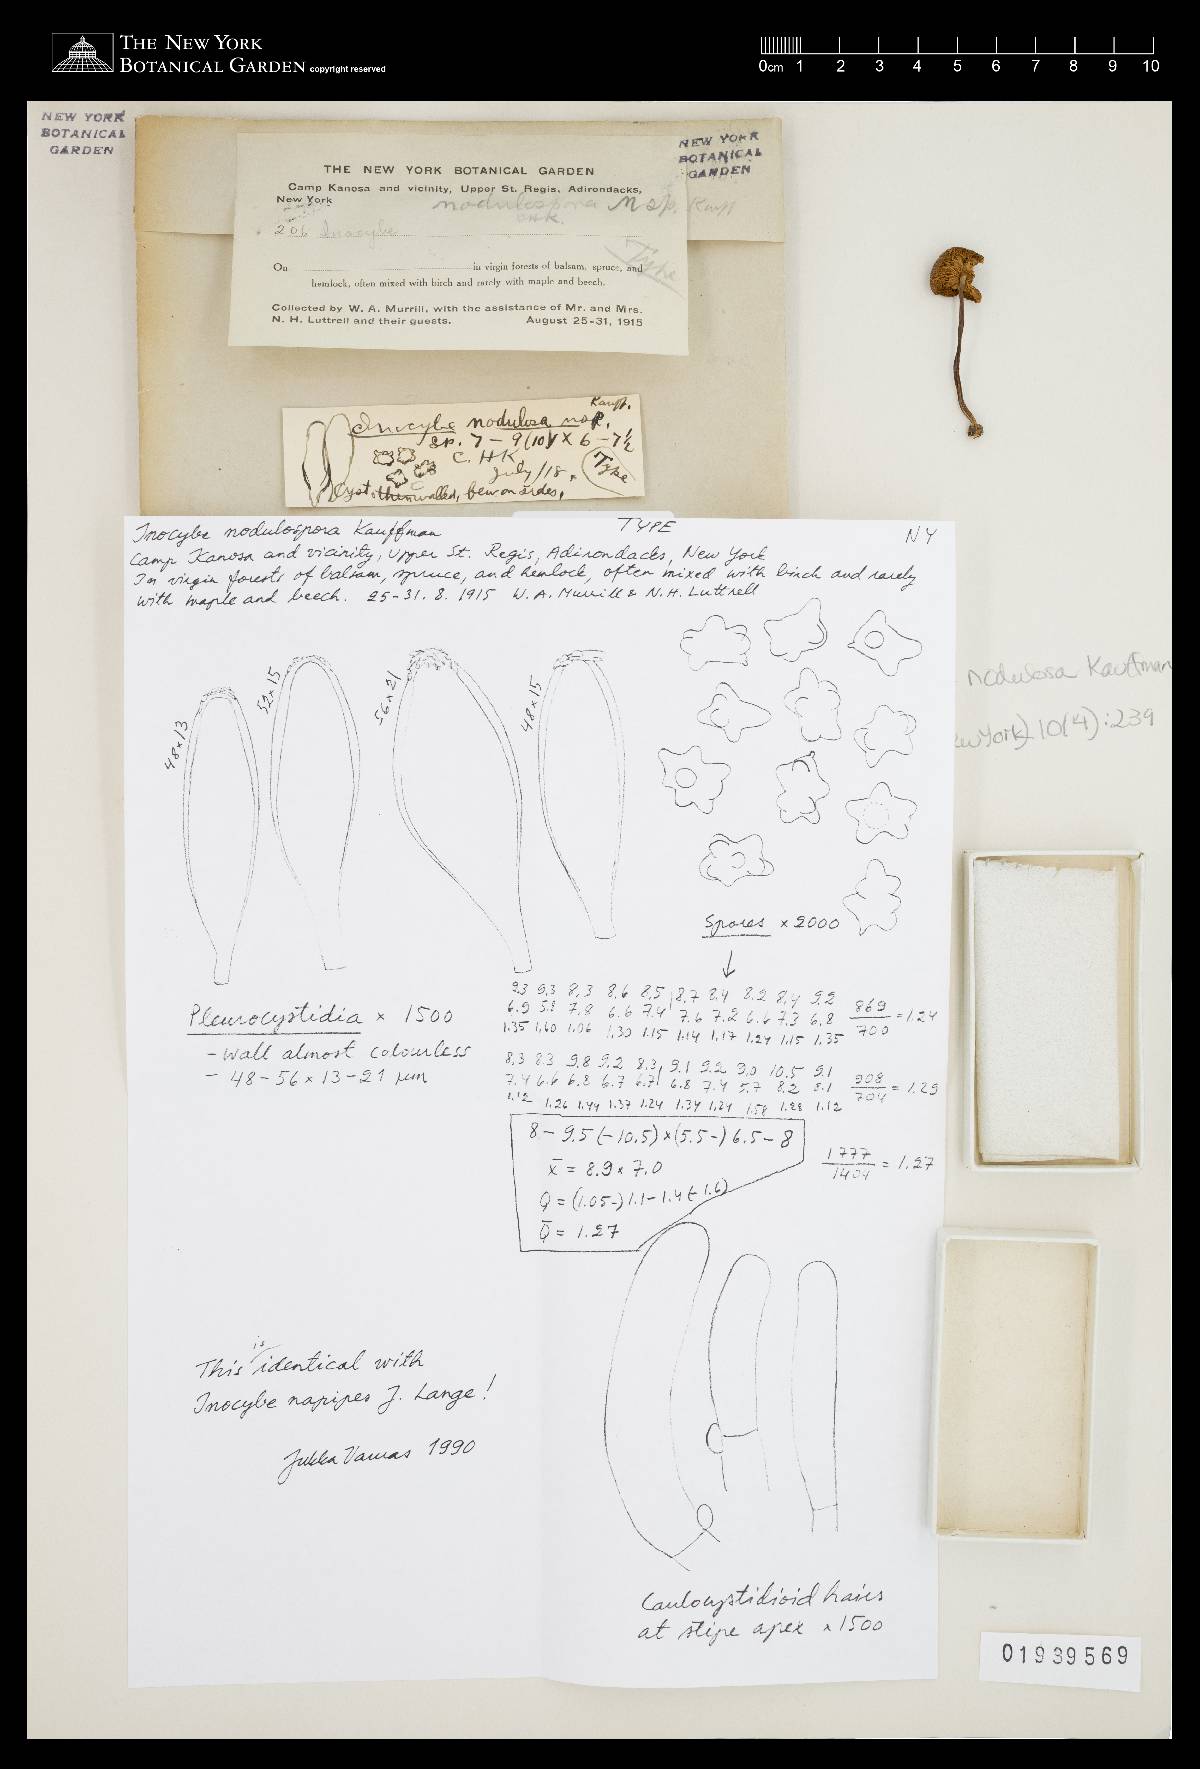 THE NEW YORK
BOTANICAL GARDEN copyright reserved
0cm 1 2 3 4 5 6 7 8 9 10
NEW YORK
BOTANICAL
GARDEN
NEW YORK
BOTANICAL
GARDEN
THE NEW YORK BOTANICAL GARDEN
Camp Kanosa and vicinity, Upper St. Regis, Adirondacks,
New York
nodulospora n sp. Kauff
CHK.
206 Inocybe
Type
On in virgin forests of balsam, spruce, and
hemlock, often mixed with birch and rarely with maple and beech.
Collected by W. A. Murrill, with the assistance of Mr. and Mrs.
N. H. Luttrell and their guests. August 25-31, 1915
Kauff.
Inocybe nodulosa n sp.
sp. 7-9(10) x 6-7½
C. H K
July/18. Type
Cyst. thinwalled, few on sides.
Inocybe nodulospora Kauffman TYPE NY
Camp Kanosa and vicinity, Upper St. Regis, Adirondacks, New York
In virgin forests of balsam, spruce, and hemlock, often mixed with birch and rarely
with maple and beech. 25-31.8.1915 W.A. Murrill & N.H. Luttrell
48x13
52x15
56x21
48x15
nodulosa Kauffman
ew York) 10(4):239
Spores x 2000
Pleurocystidia x 1500
- wall almost colourless
- 48-56 x 13-21 µm
9.3 9.3 8.3 8.6 8.5 8.7 8.4 8.2 8.4 9.2
6.9 5.8 7.8 6.6 7.4 7.6 7.2 6.6 7.3 6.8
1.35 1.60 1.06 1.30 1.15 1.14 1.17 1.24 1.15 1.35
869/700 = 1.24
8.3 8.3 9.8 9.2 8.3 9.1 9.2 9.0 10.5 9.1
7.4 6.6 6.8 6.7 6.7 6.8 7.4 5.7 8.2 8.1
1.12 1.26 1.44 1.37 1.24 1.34 1.24 1.58 1.28 1.12
908/704 = 1.29
8-9.5(-10.5) x (5.5-)6.5-8
x̄ = 8.9 x 7.0
Q = (1.05-)1.1-1.4(-1.6)
Q̄ = 1.27
1777/1404 = 1.27
This is identical with
Inocybe napipes J. Lange!
Jukka Vauras 1990
Caulocystidioid hairs
at stipe apex x 1500
01939569